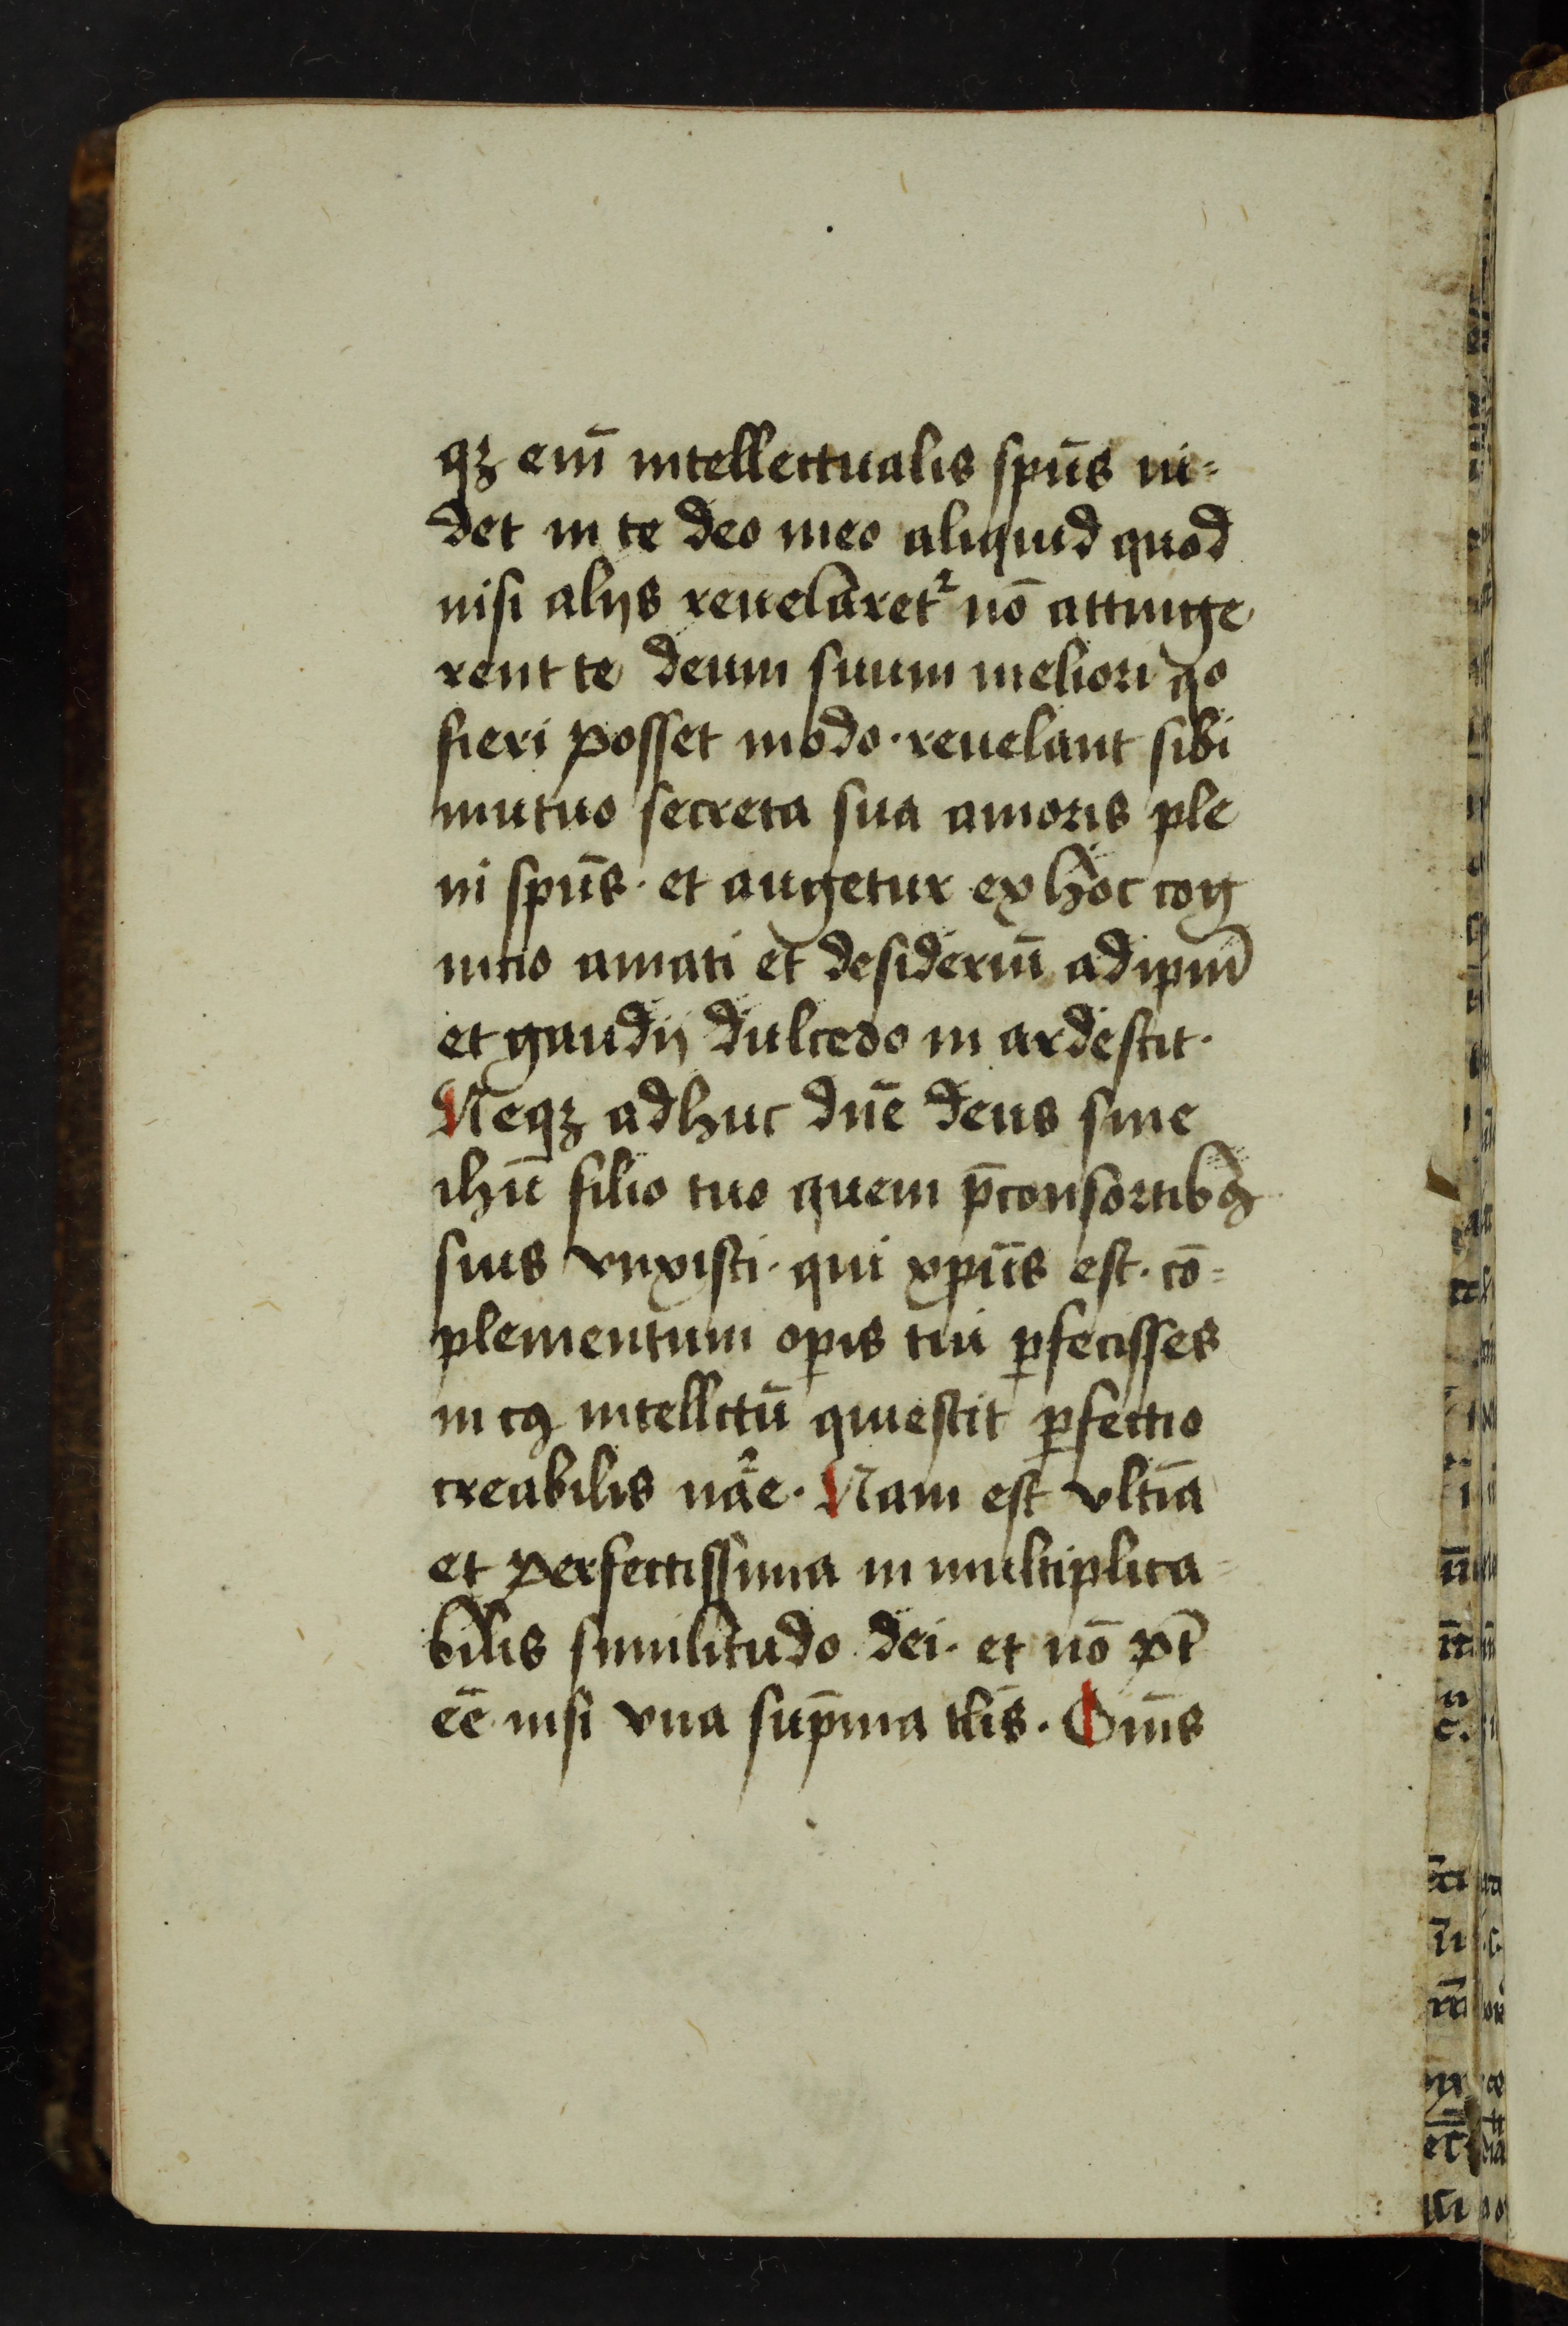 qꝫ em̄ intellectualis sp̄us ui⸗
det in te deo meo aliquid quod
nisi alijs reuelaret᷑ nō attinge
rent te deum suum meliori q̊
fieri posset modo · reuelant sibi
mutuo secreta sua amoris ple
ni sp̄us · et augetur ex hoc cog
nitio amati et desideriū ad ip̄m
et gaudij dulcedo in ardescit ·
Neqꝫ adhuc dn̄e deus sine
ihū filio tuo quem p̄ consortibꝯ
suis vnxisti · qui xp̄us est · cō⸗
plementum oꝑis tui ꝑfecisses
in cꝯ intellc̄tū quiescit ꝑfectio
creabilis nāe · Nam est vltīa
et perfectissima in multiplica⸗
bilis similitudo dei · et nō pt̄
ēē nisi vna sup̄ma tl̄is · Om̄s